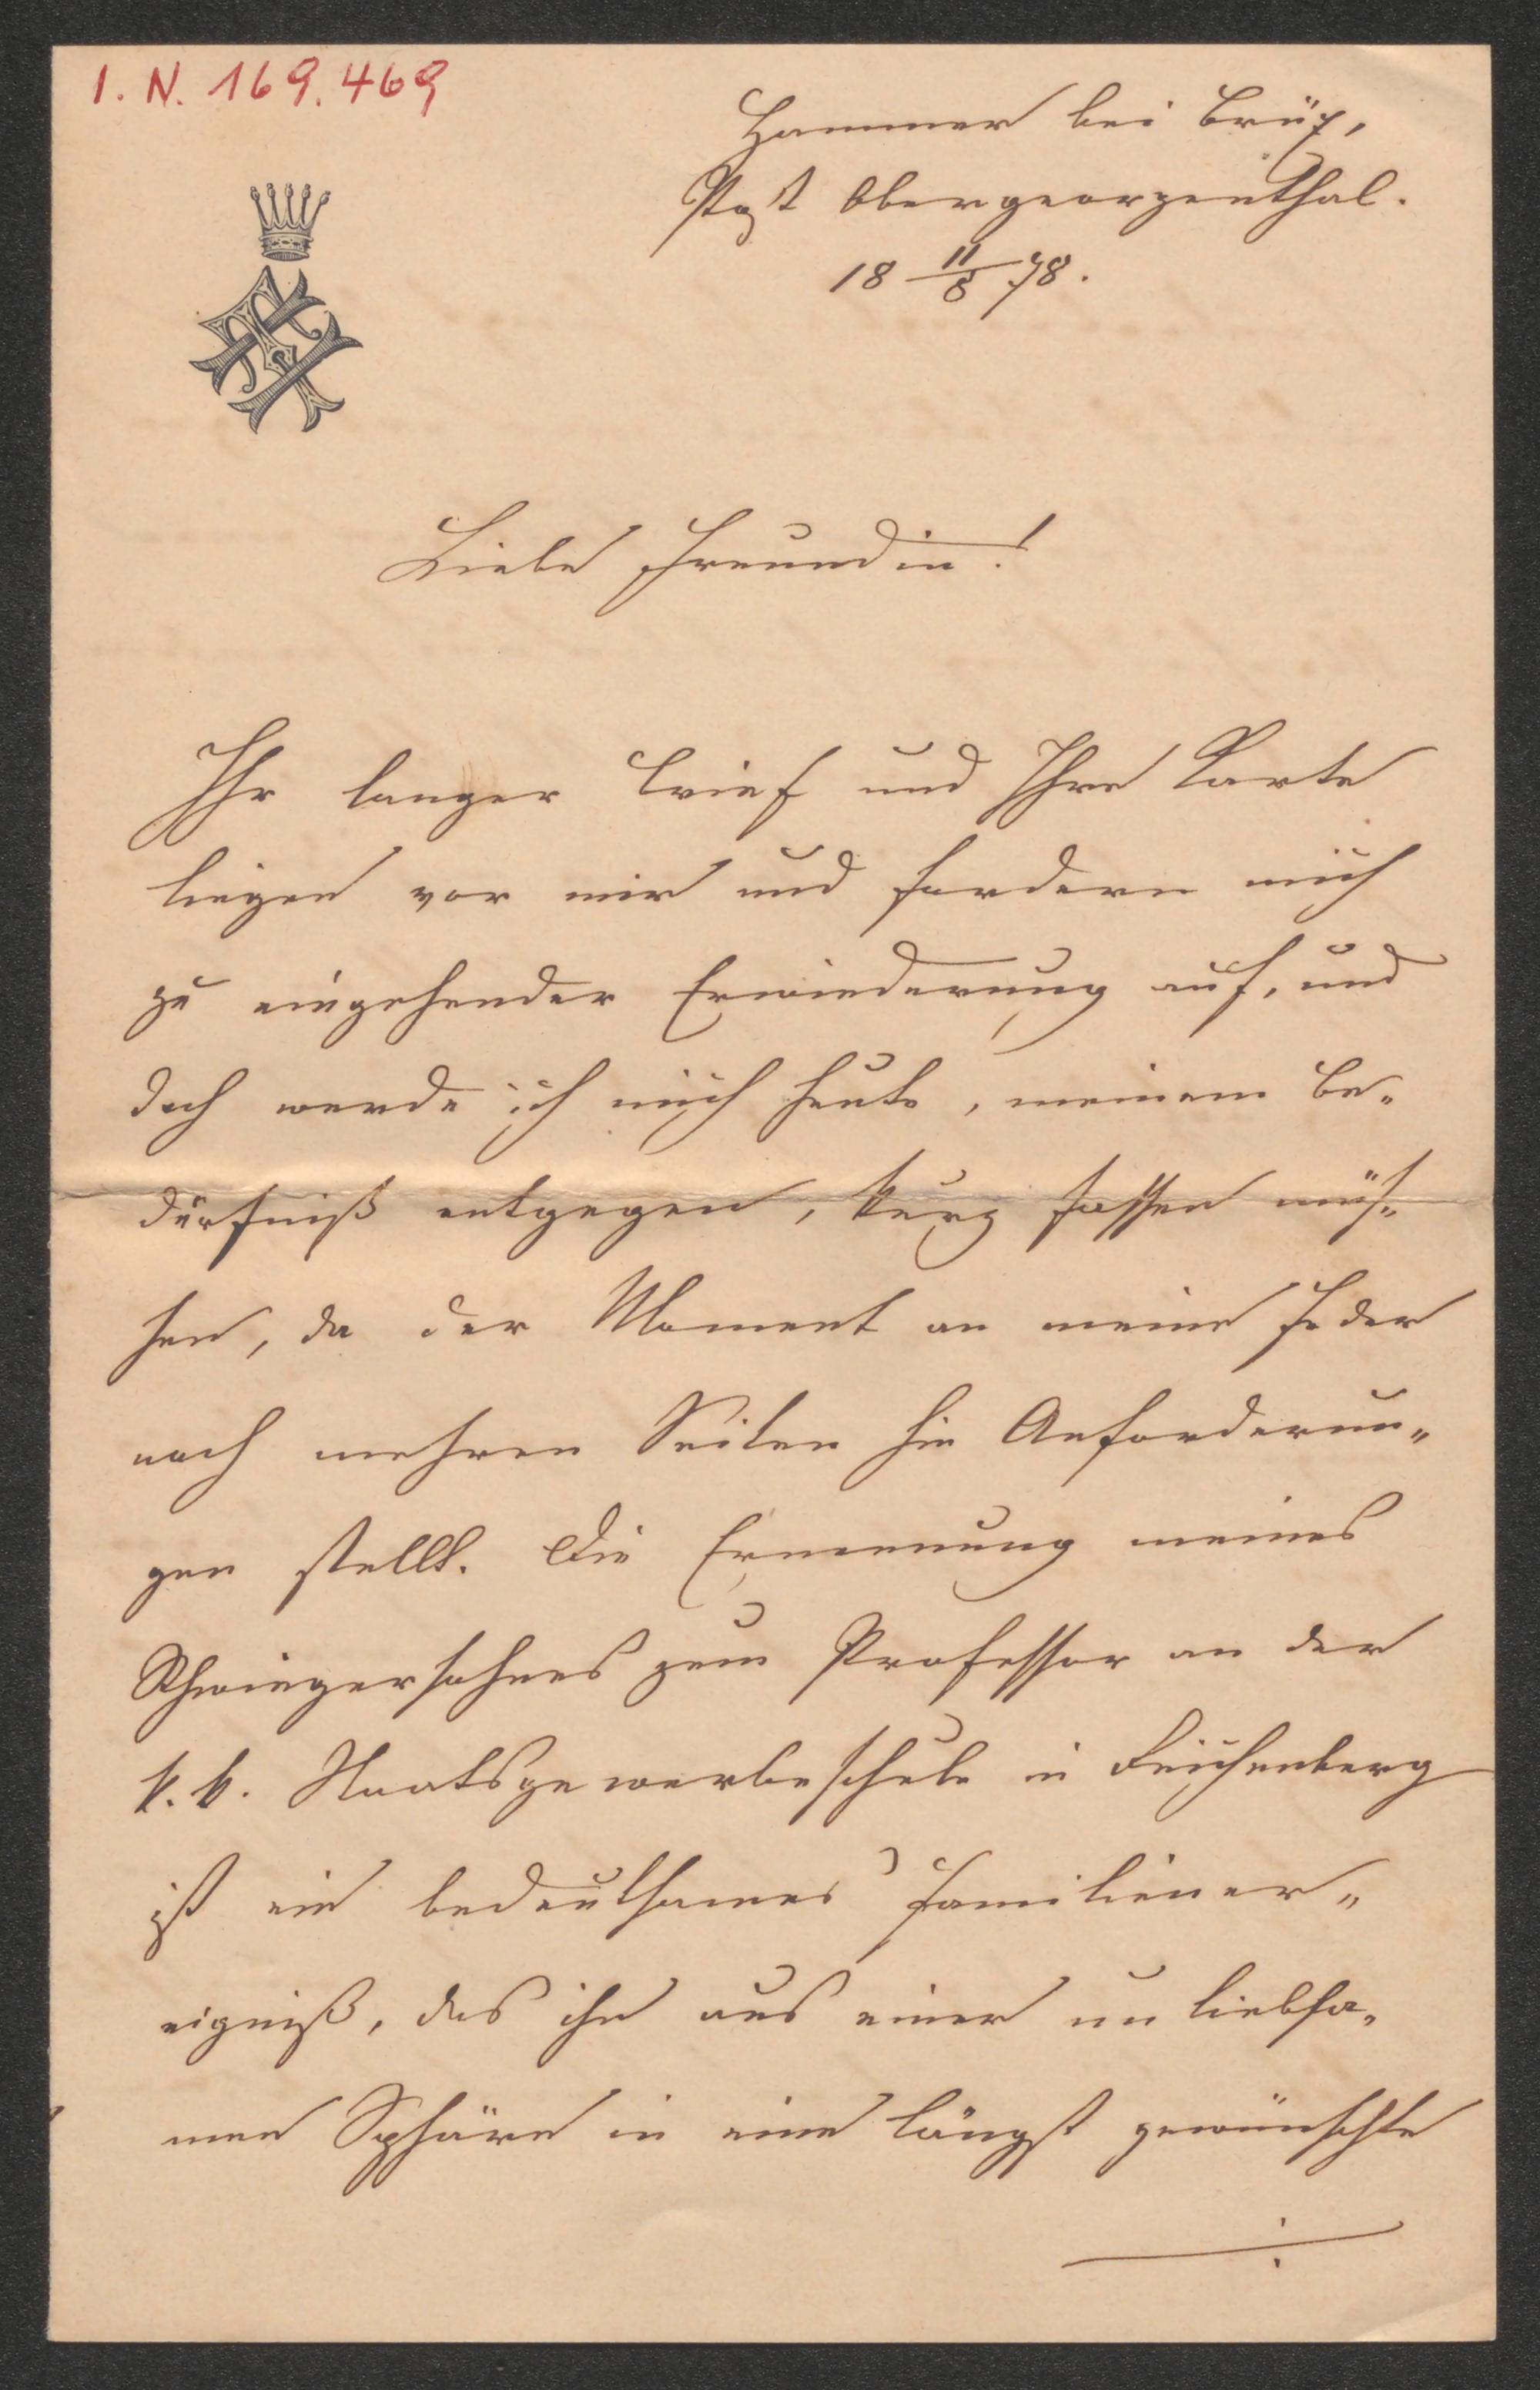 I. N. 169.469
Hammer bei Brüx,
Post Obergeorgenthal.
18 11/8 78.
Liebe Freundin!
Ihr langer Brief und Ihre Karte
liegen vor mir und fordern mich
zu eingehender Erwiederung auf, und
doch werde ich mich heute, meinem Be„
dürfniß entgegen, kurz fassen müs„
sen, da der Moment an meine Feder
nach mehren Seiten hin Anforderun„
gen stellt. Die Ernennung meines
Schwiegersohnes zum Professor an der
k. k. Staatsgewerbeschule in Reichenberg
ist ein bedeuthsames Familiener„
eigniß, das ihn aus einer unliebsa„
men Sphäre in eine längst gewünschte